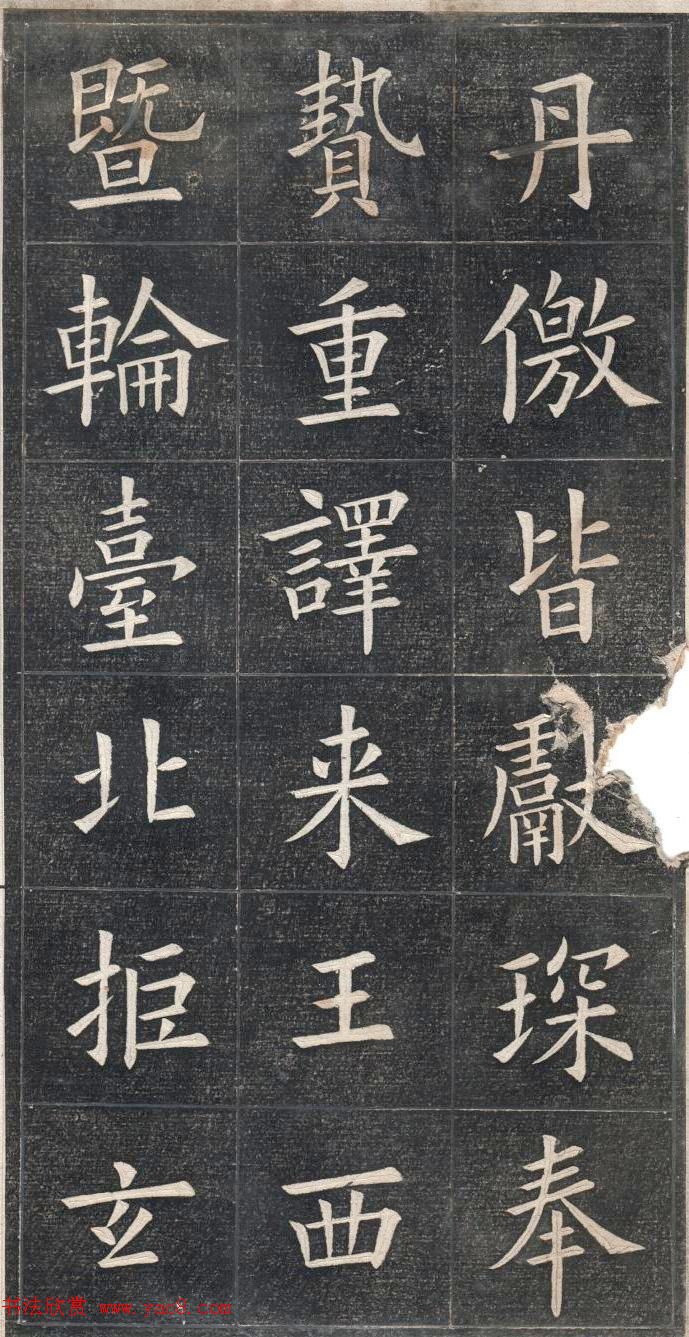 丹儌皆獻琛奉
贄重譯来王西
暨輪臺北拒玄
书法欣赏 www.yac8.com